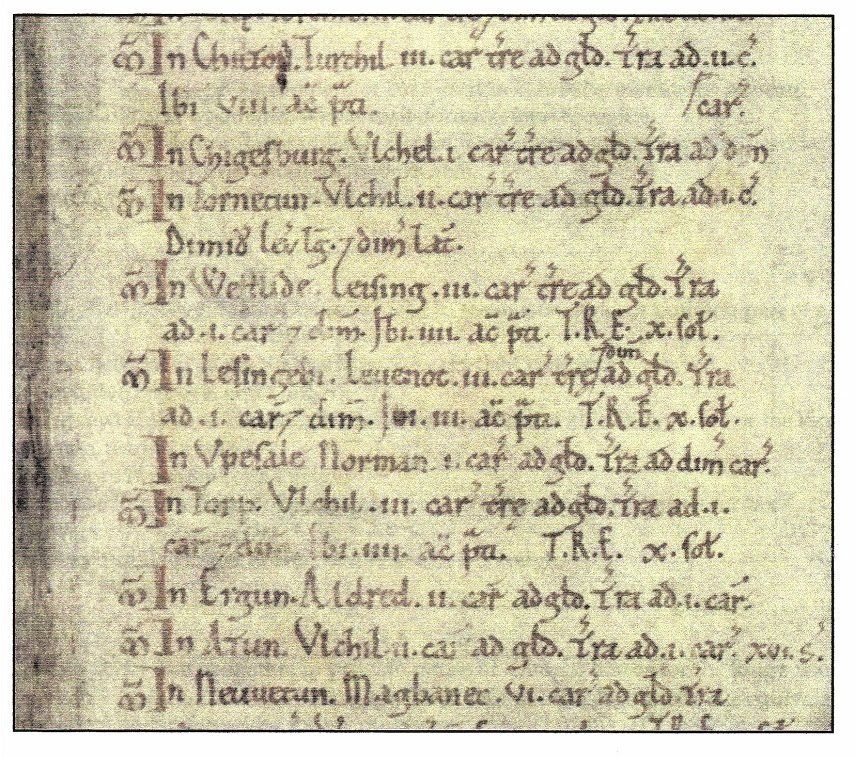 m̃ In Chiltoṇ. Turchil. iii. car̃ tr̃e ad gld̃. T̃ra ad .ii. c̃.
Ibi viii. ac̃ p̃ti. car̃.
m̃ In Chigesburg. Vlchel. i car̃ tr̃e ad gld̃. T̃ra ad dim̃
m̃ In Tornetun. Vlchil. ii. car̃ tr̃e ad gld̃. T̃ra ad .i. c̃.
Dimiđ leṽ lg̃. ⁊ dim̃ lat̃.
m̃ In Westlide. Leising. iii. car̃ tr̃e ad gld̃. T̃ra
ad .i. car̃ ⁊ dim̃. Ibi .iiii. ac̃ p̃ti. T.R.E. x. sol̃.
⁊ dim̃
m̃ In Lesingebi. Leuenot. iii. car̃ tr̃e ad gld̃. T̃ra
ad .i. car̃ ⁊ dim̃. Ibi .iii. ac̃ p̃ti. T.R.E. x. sol̃.
In Vpesale Norman. i. car̃ ad gld̃. T̃ra ad dim̃ car̃.
m̃ In Torp. Vlchil. iii. car̃ tr̃e ad gld̃. T̃ra ad .i.
car̃ ⁊ dim̃. Ibi .iiii. ac̃ p̃ti. T.R.E. x. sol̃.
m̃ In Ergun. Aldred. ii. car̃ ad gld̃. T̃ra ad .i. car̃.
m̃ In Atun. Vlchil. ii. car̃ ad gld̃. T̃ra ad .i. car̃. xvi. s̃.
m̃ In Neuuetun. Magbanec. vi. car̃ ad gld̃. T̃ra